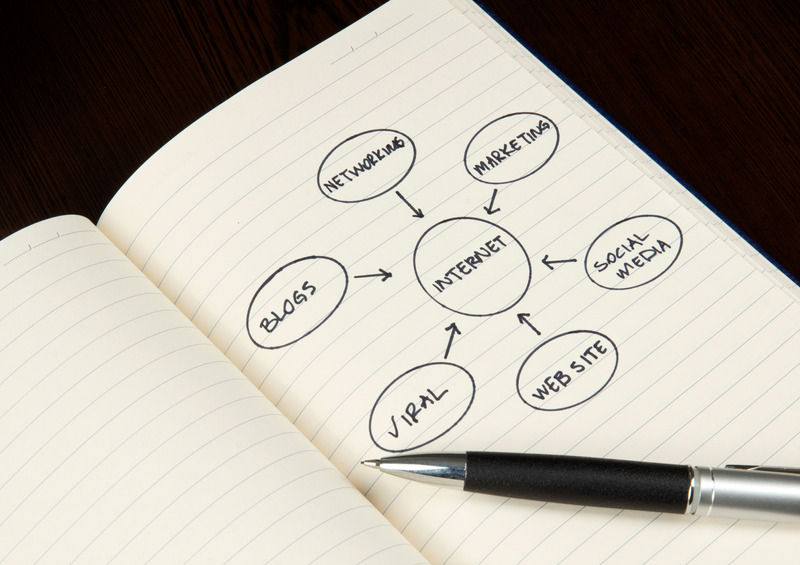 NETWORKING
MARKETING
INTERNET
SOCIAL
MEDIA
BLOGS
WEB SITE
VIRAL